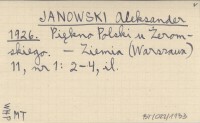 JANOWSKI Aleksander
1926. Piękno Polski u Żerom-
skiego. – Ziemia (Warszawa)
11, nr 1: 2-4, il.
MT